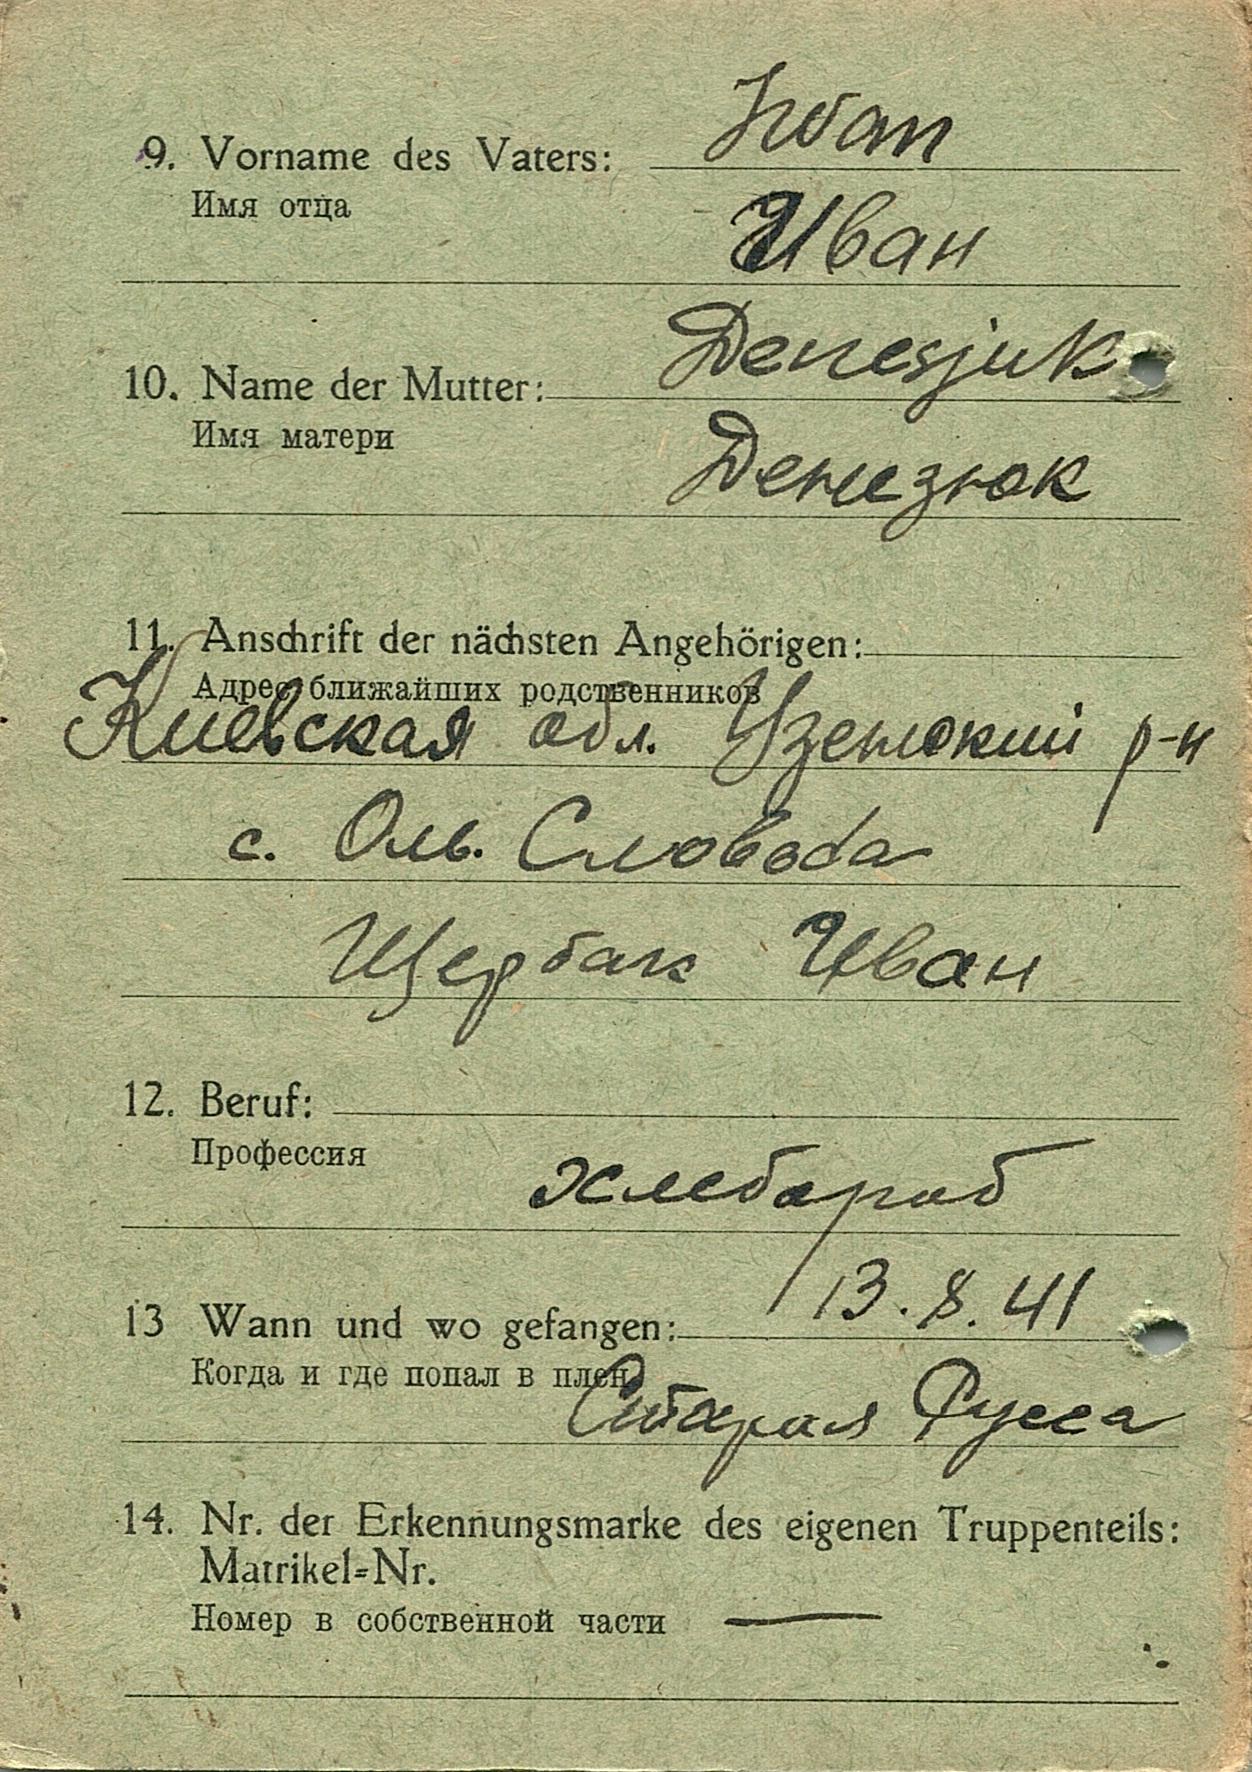 9. Vorname des Vaters: Iван
Имя отца
Иван
10. Name der Mutter: Denesjuk
Имя матери
Денезюк
11. Anschrift der nächsten Angehörigen:
Адрес ближайших родственников
Киевская обл. Узенский р-н
с. Оль. Словода
Щербак Иван
12. Beruf:
Профессия
хлебароб
13 Wann und wo gefangen: 13.8.41
Когда и где попал в плен
Старая Русса
14. Nr. der Erkennungsmarke des eigenen Truppenteils:
Matrikel=Nr.
Номер в собственной части —